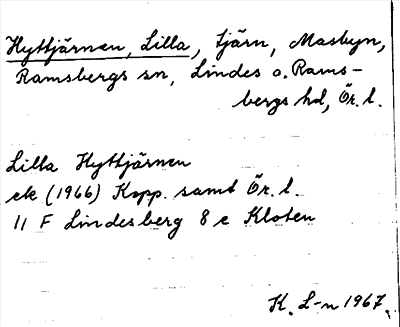 Hyttjärnen, Lilla, tjärn, Masbyn,
Ramsbergs sn, Lindes o. Rams-
bergs hd, Ör. l.
Lilla Hyttjärnen
ek (1966) Kopp. samt Ör. l.
11 F Lindesberg 8 e Kloten
K. L-n 1967.